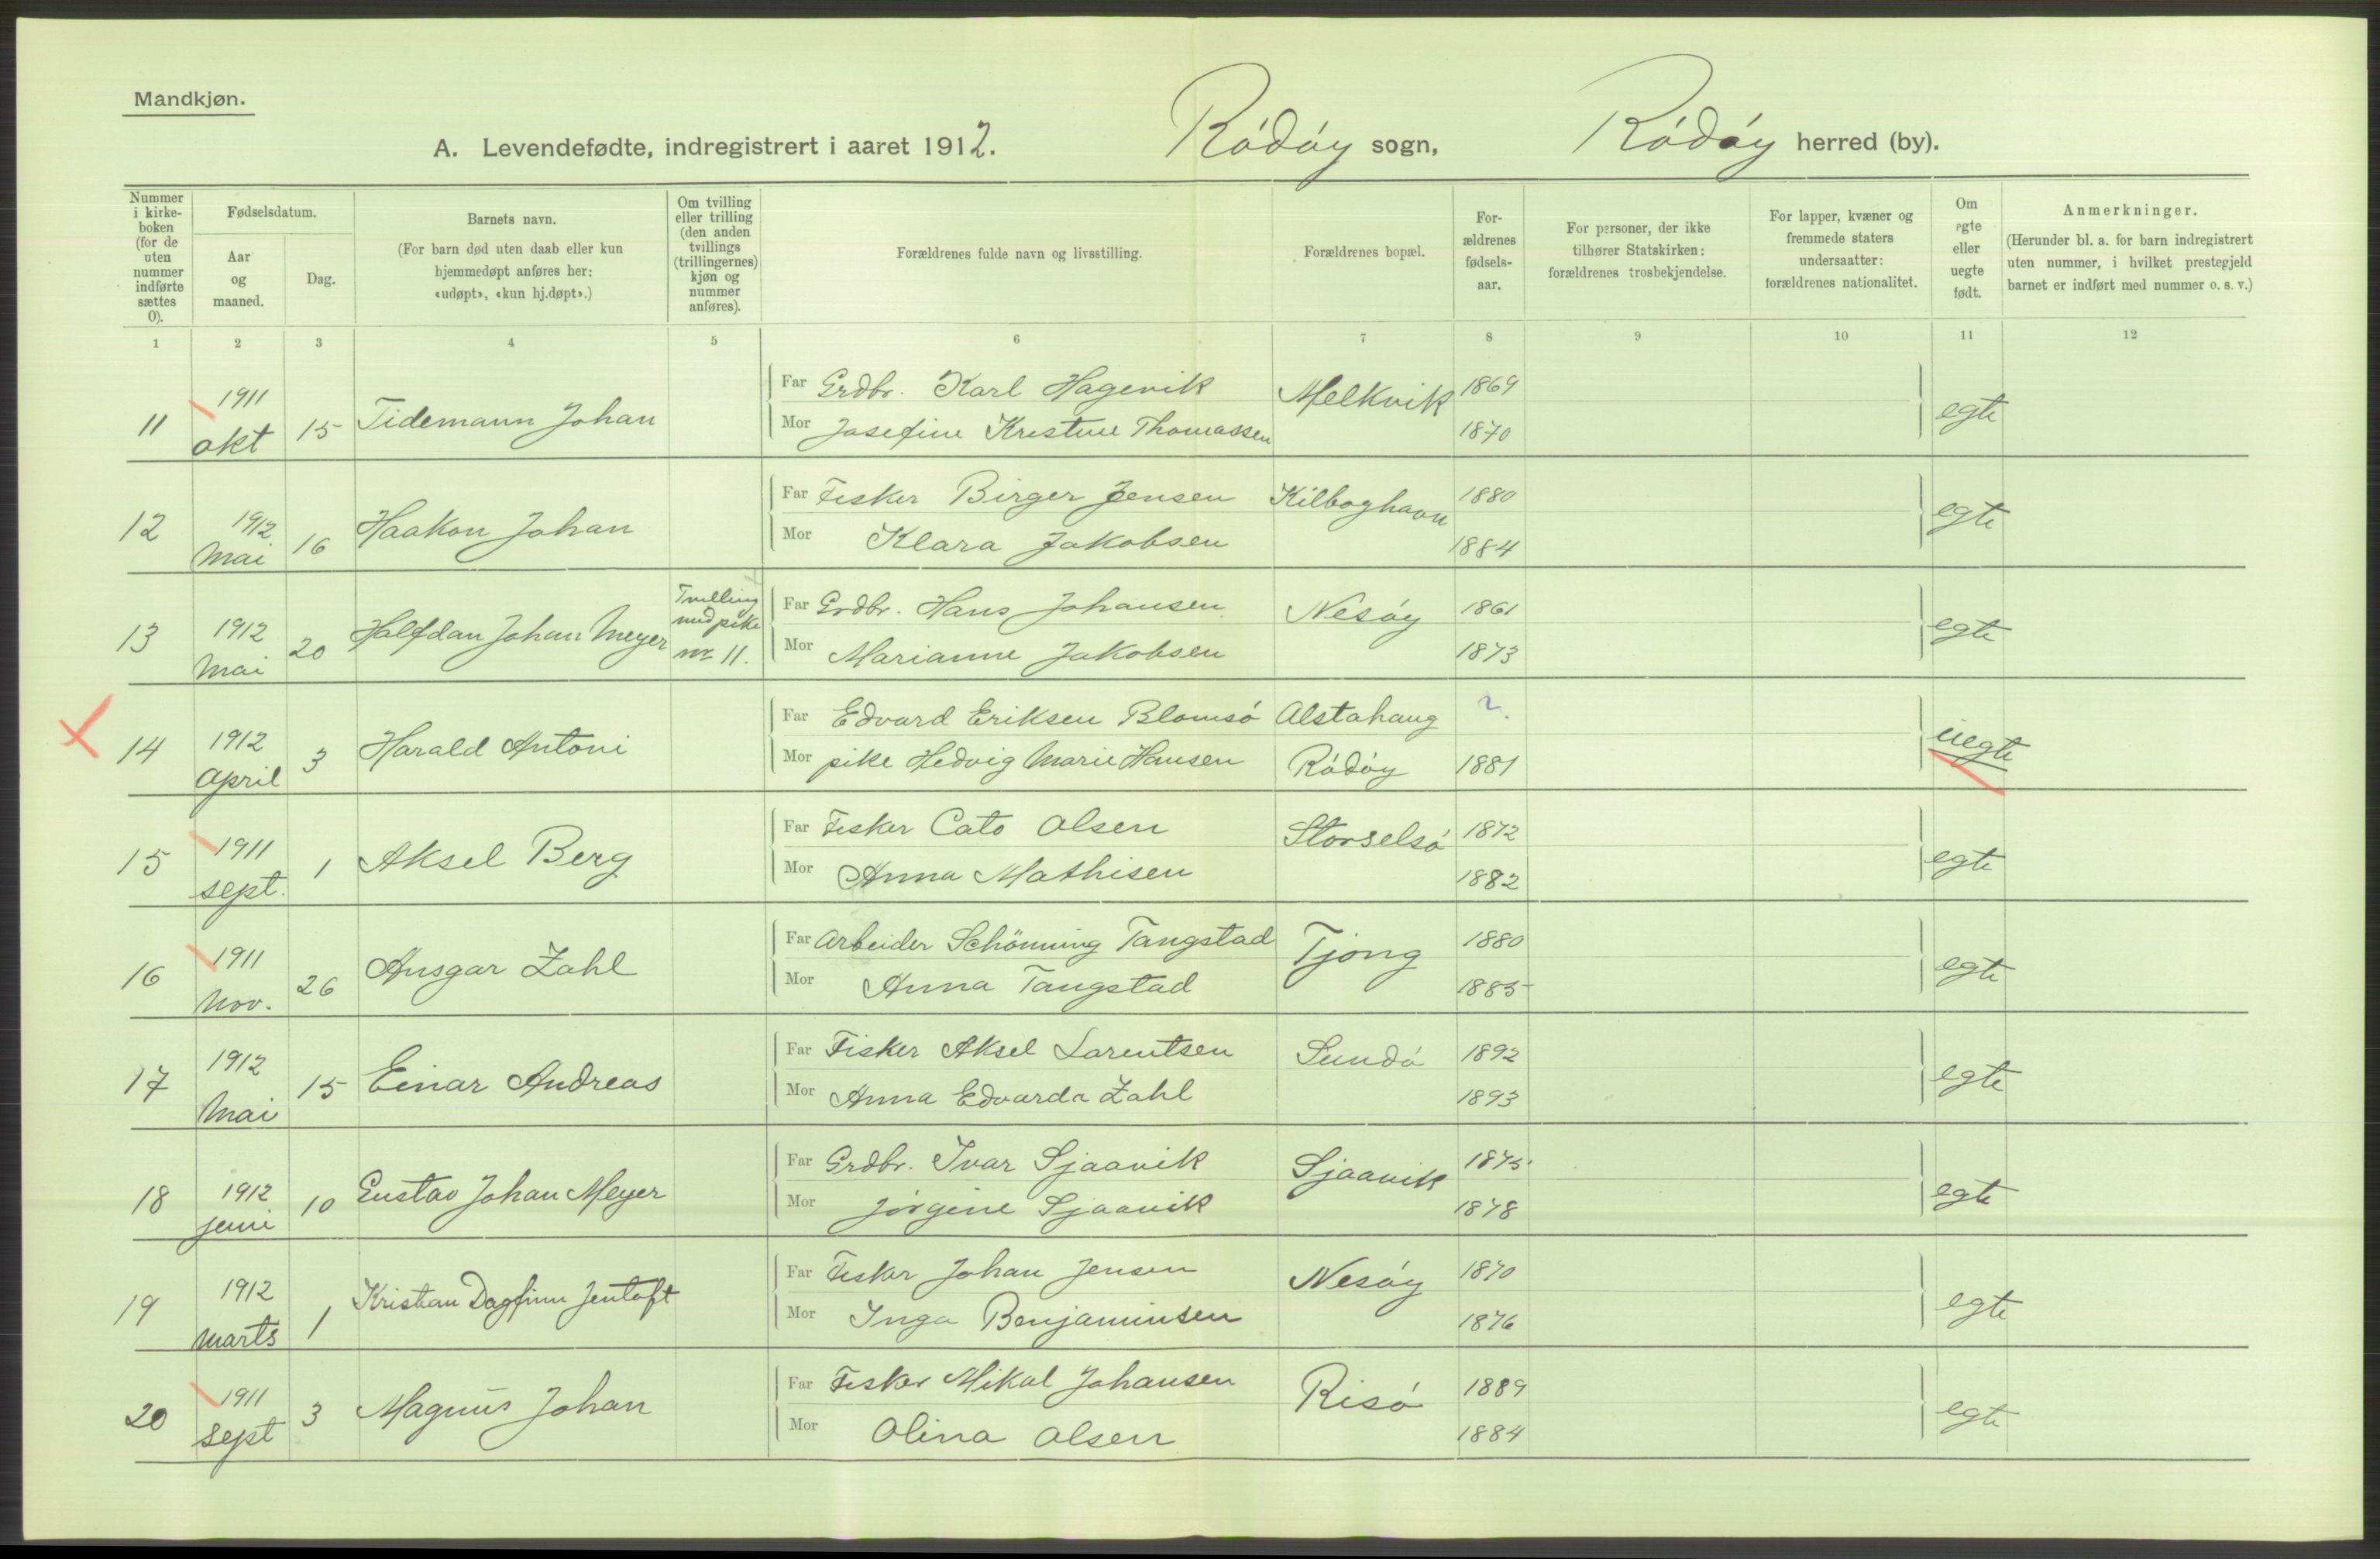 Mandkjøn.
A. Levendefødte, indregistrert i aaret 1912. Rödöy sogn, Rödöy herred (by).
Nummer i kirke-boken (for de uten nummer indførte sættes 0).
Fødselsdatum.
Aar og maaned.
Dag.
Barnets navn.
(For barn død uten daab eller kun hjemmedøpt anføres her: «udøpt», «kun hj.døpt».)
Om tvilling eller trilling (den anden tvillings (trillingernes) kjøn og nummer anføres).
Forældrenes fulde navn og livsstilling.
Forældrenes bopæl.
For-ældrenes fødsels-aar.
For personer, der ikke tilhører Statskirken: forældrenes trosbekjendelse.
For lapper, kvæner og fremmede staters undersaatter: forældrenes nationalitet.
Om egte eller uegte født.
Anmerkninger.
(Herunder bl. a. for barn indregistrert uten nummer, i hvilket prestegjeld barnet er indført med nummer o. s. v.)
1 2 3 4 5 6 7 8 9 10 11 12
11 1911 okt 15 Tidemann Johan
Far Grdbr. Karl Hagevik Melkvik 1869
Mor Josefine Kristine Thomassen 1870 egte
12 1912 Mai 16 Haakon Johan
Far Fisker Birger Jensen Kilboghavn 1880
Mor Klara Jakobsen 1884 egte
13 1912 Mai 20 Halfdan Johan Meyer Tvilling med pike nr. 11.
Far Grdbr. Hans Johansen Nesöy 1861
Mor Marianne Jakobsen 1873 egte
14 1912 April 3 Harald Antoni
Far Edvard Eriksen Blomsö Alstahaug ?
Mor pike Hedvig Marie Hansen Rödöy 1881 uegte
15 1911 sept. 1 Aksel Berg
Far Fisker Cato Olsen Storselsö 1872
Mor Anna Mathisen 1882 egte
16 1911 Nov. 26 Ansgar Zahl
Far Arbeider Schönning Tangstad Tjong 1880
Mor Anna Tangstad 1885 egte
17 1912 Mai 15 Einar Andreas
Far Fisker Aksel Larentsen Sundö 1892
Mor Anna Edvarda Zahl 1893 egte
18 1912 juni 10 Gustav Johan Meyer
Far Grdbr. Ivar Sjaavik Sjaavik 1875
Mor Jörgine Sjaavik 1878 egte
19 1912 marts 1 Kristian Dagfinn Jentoft
Far Fisker Johan Jensen Nesöy 1870
Mor Inga Benjaminsen 1876 egte
20 1911 sept 3 Magnus Johan
Far Fisker Mikal Johansen Risö 1889
Mor Olina Olsen 1884 egte